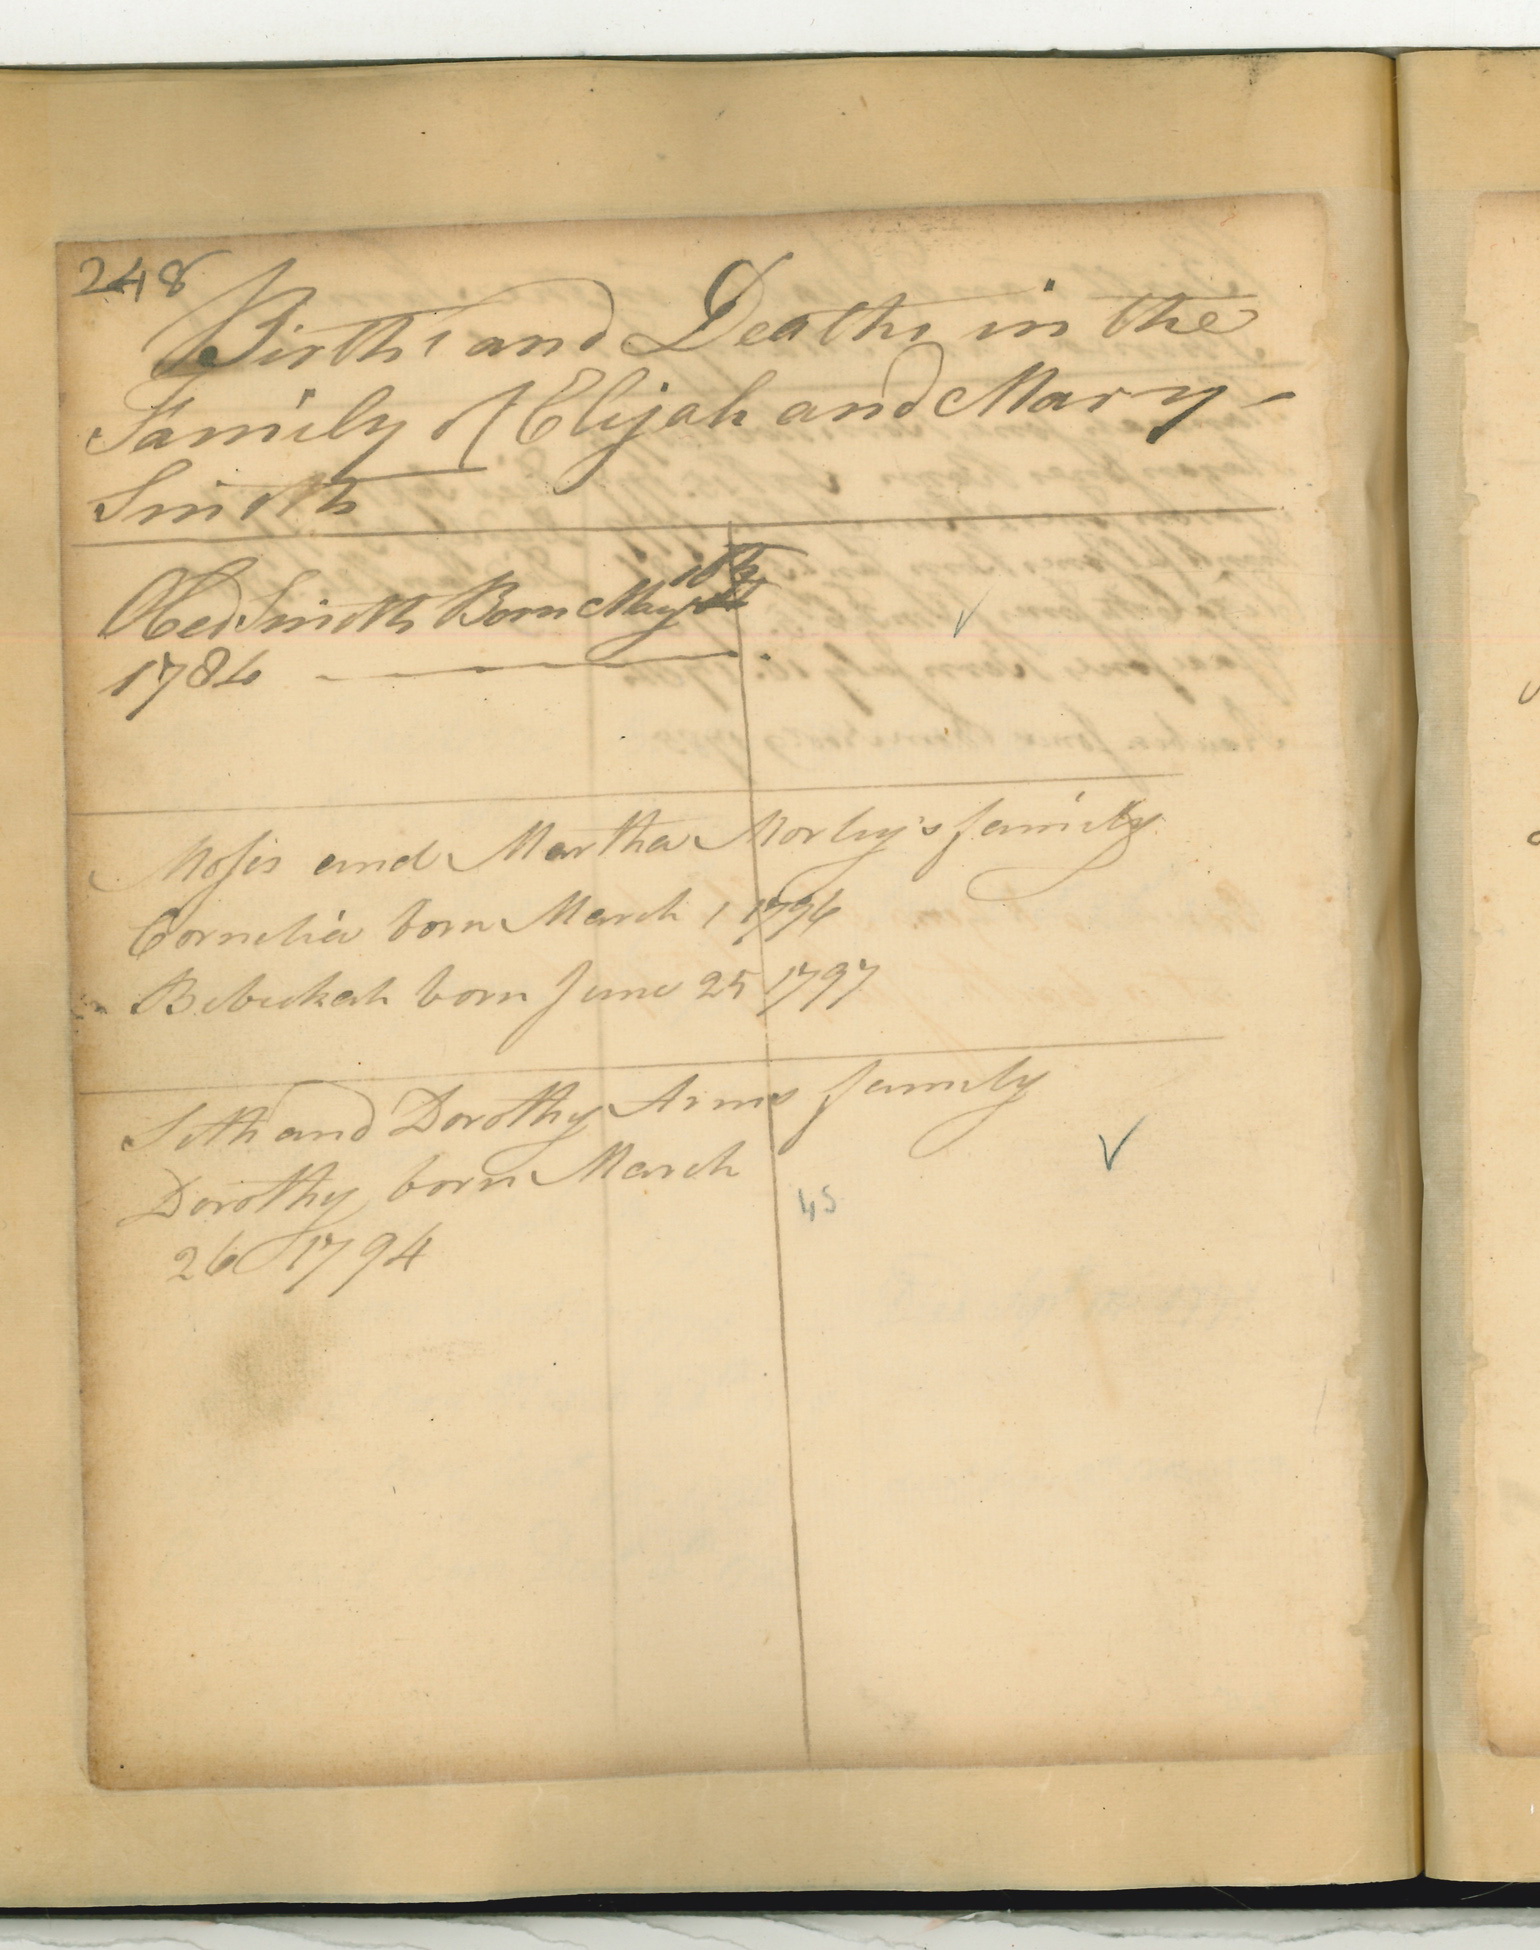 248
Births and Deaths in the
Family of Elijah and Mary -
Smith
Obed Smith Born May 10th
1784
Moses and Martha Morley's family
Cornelia born March 1 1796
Rebeckah born June 25 1797
Seth and Dorothy Arms family
Dorothy born March
26 1794
45